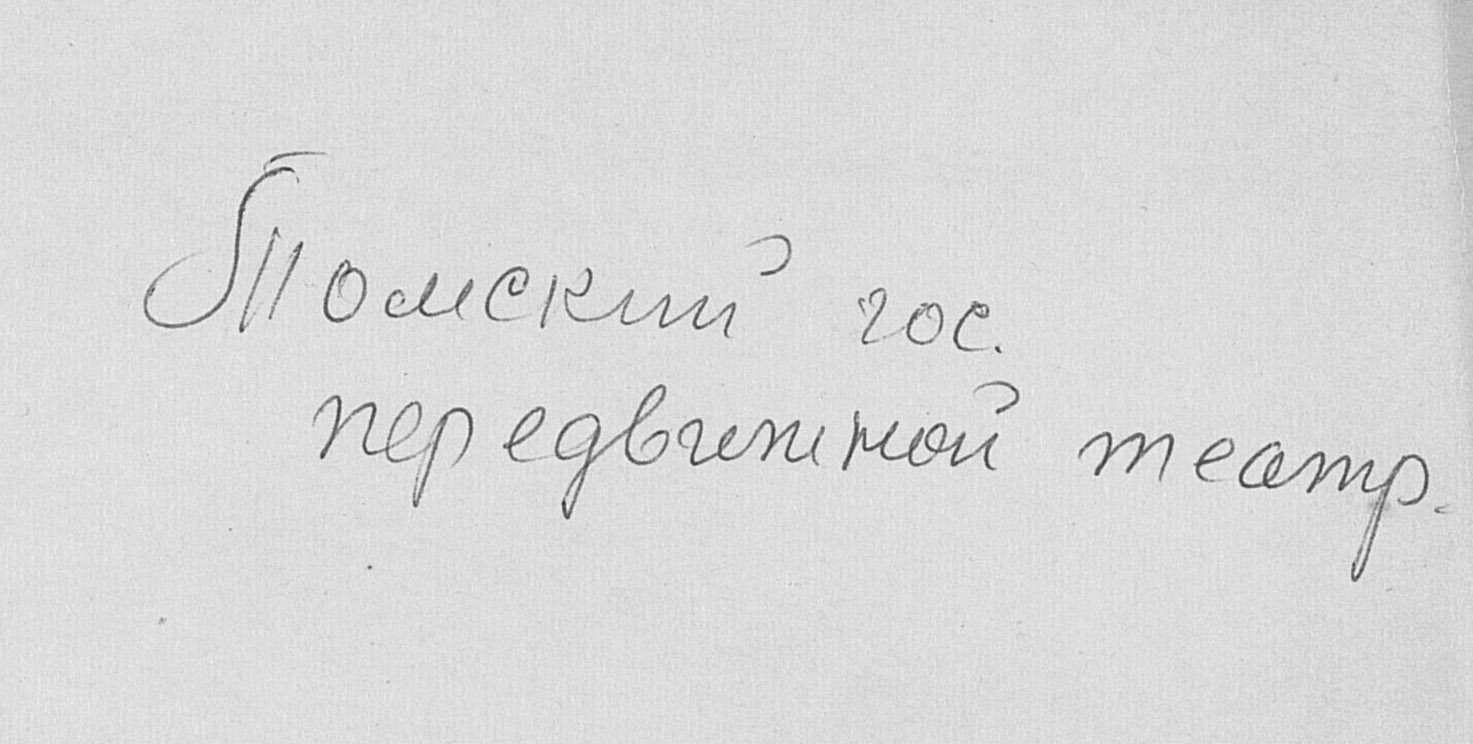 Томский гос.
передвижной театр.